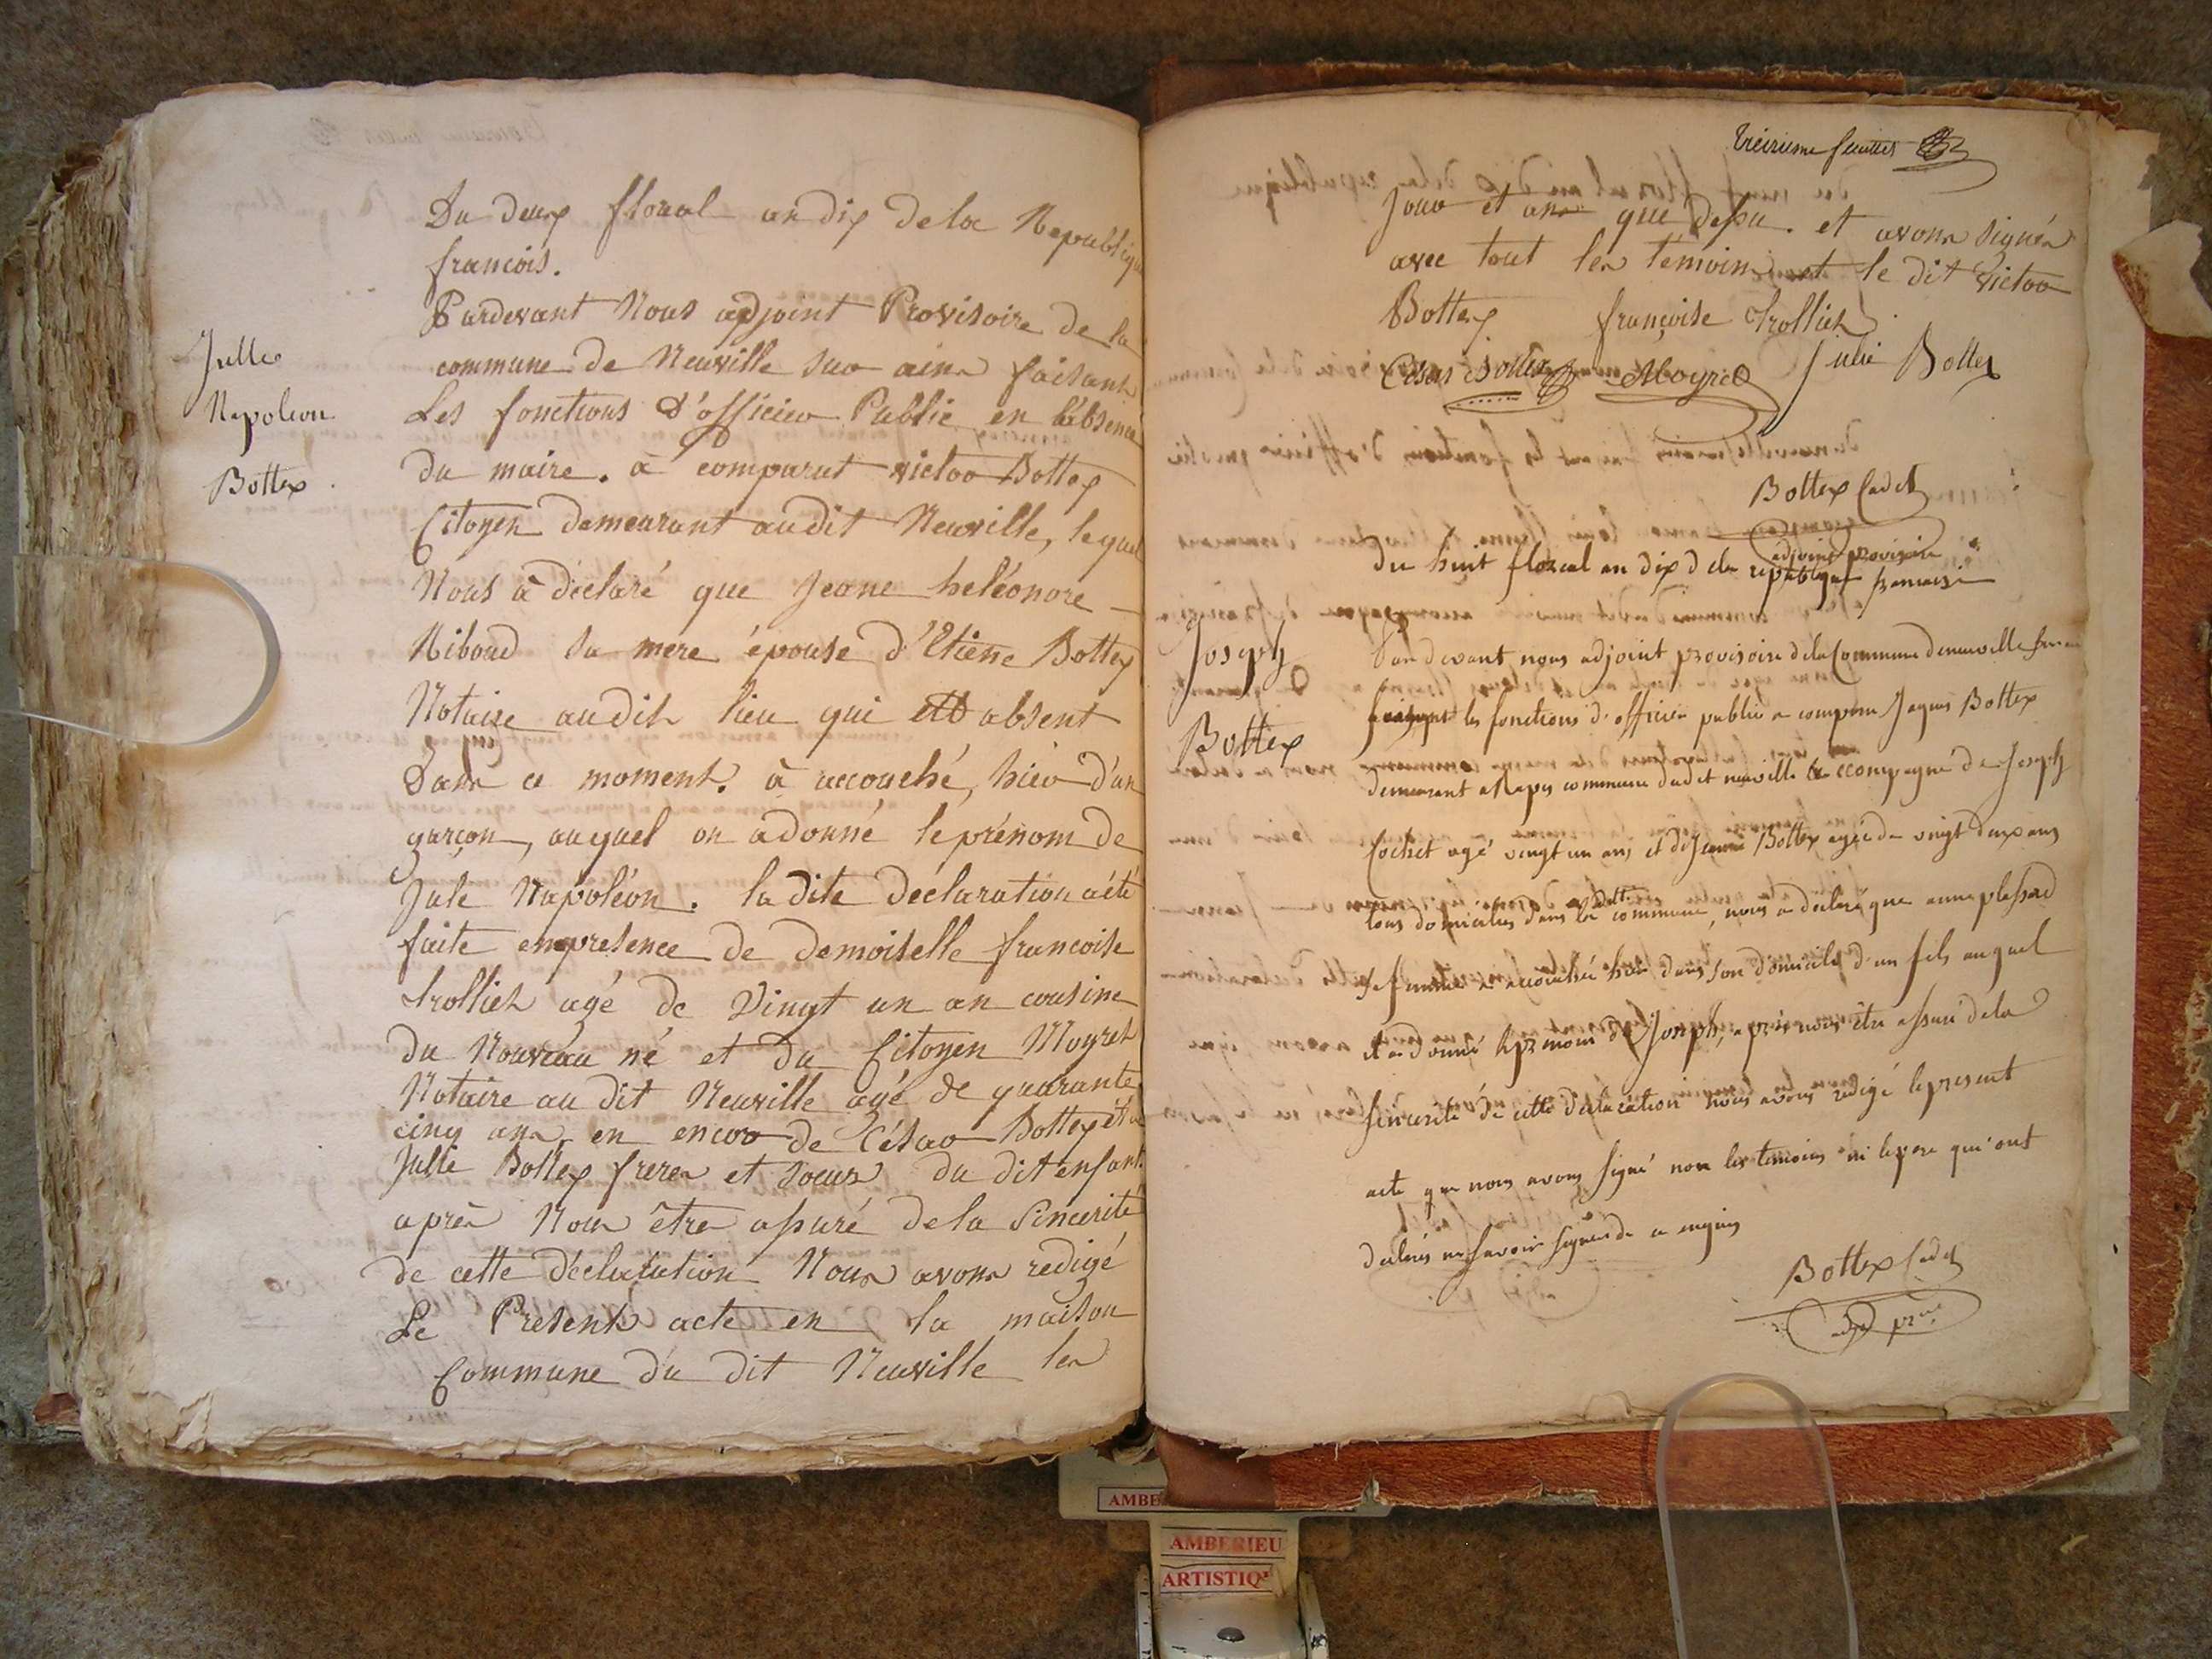 Du deux floral an dix de la Republique
francois.
Pardevant Nous adjoint Provisoire de la
commune de Neuville sur ain faisant
Les fonctions d'officier Public en l'absence
du maire. à comparut victor Bottex
Citoyen demeurant audit Neuville, lequel
Nous à déclaré que Jeane heléonore
Riboud sa mere épouse d'Etiene Bottex
Notaire audit lieu qui est absent
Dans ce moment. à accouché, hier d'un
garçon, auquel on a donné le prénom de
Jule Napoléon. la dite déclaration a été
faite en presence de demoiselle francoise
trolliet agé de Vingt un an cousine
du Nouveau né et du Citoyen Moyret
Notaire au dit Neuville agé de quarante
cinq ans en encor de César Bottex et
Julie Bottex freres et soeurs du dit enfant.
après Nous être assuré de la Sincerité
de cette déclaration Nous avons redigé
Le Present acte en la maison
Commune du dit Neuville les
Julles
Napoleon
Bottex
treizieme feuillet
Jour et ans que dessu. et avons signés
avec tout les témoins et le dit victor
Bottex françoise trolliet
César Bottex Moyret Julie Bottex
Bottex Cadet
adjoint provisoire
Du huit floreal an dix de la republique francaise
Joseph
Bottex
Par devant nous adjoint provisoire de la Commune de neuville sur
faisant les fonctions d'officier public a comparu Jaques Bottex
demeurant a Rapes commune dudit neuville accompagné de Joseph
Cochet agé vingt un ans et de Jeanne Bottex agée de vingt deux ans
tous domiciliés dans la dite commune, nous a declaré que anne plassard
sa femme a accouché hier dans son domicile d'un fils auquel
il a donné le prenom de Joseph, après nous être assuré de la
sincerité de cette declaration nous avons redigé le present
acte que nous avons signé non les temoins ni le pere qui ont
declarés ne savoir signer de ce enquis
Bottex Cadet
adj prre
AMBE
AMBERIEU
ARTISTIQ